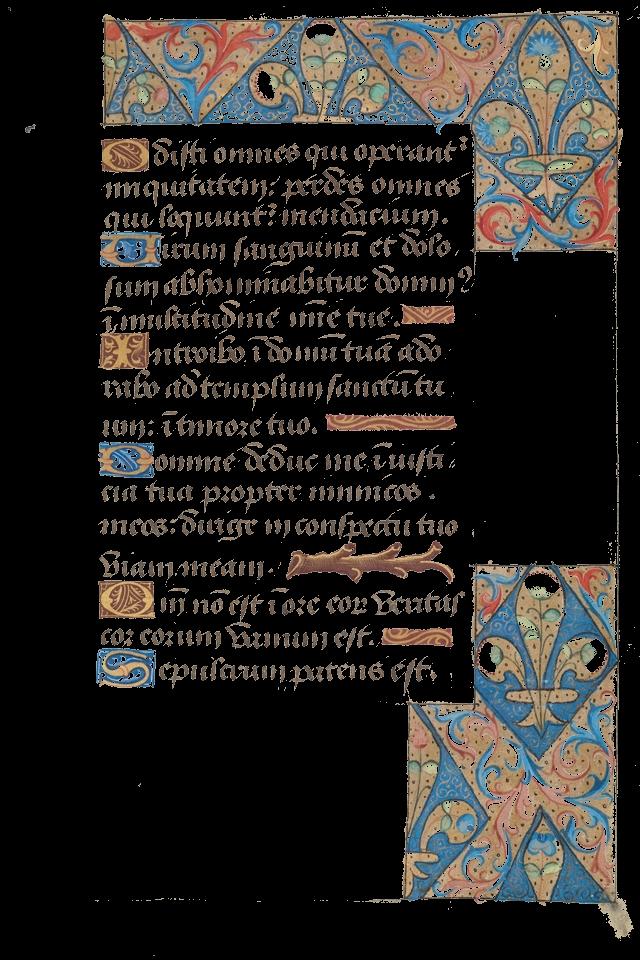 Odisti omnes qui operant᷑
iniquitatem: perdes omnes
qui loquunt᷑ mendacium.
Virum sanguinū et dolo
sum abhominabitur domin᷒
ī multitudine mīe tue.
Introibo ī domū tuā ado
rabo ad templum sanctū tu
um: ī timore tuo.
Domine deduc me ī iusti
cia tua propter inimicos
meos: dirige in conspectu tuo
viam meam.
Qm̄ nō est ī ore eor veritas
cor eorum vanum est.
Sepulcrum patens est